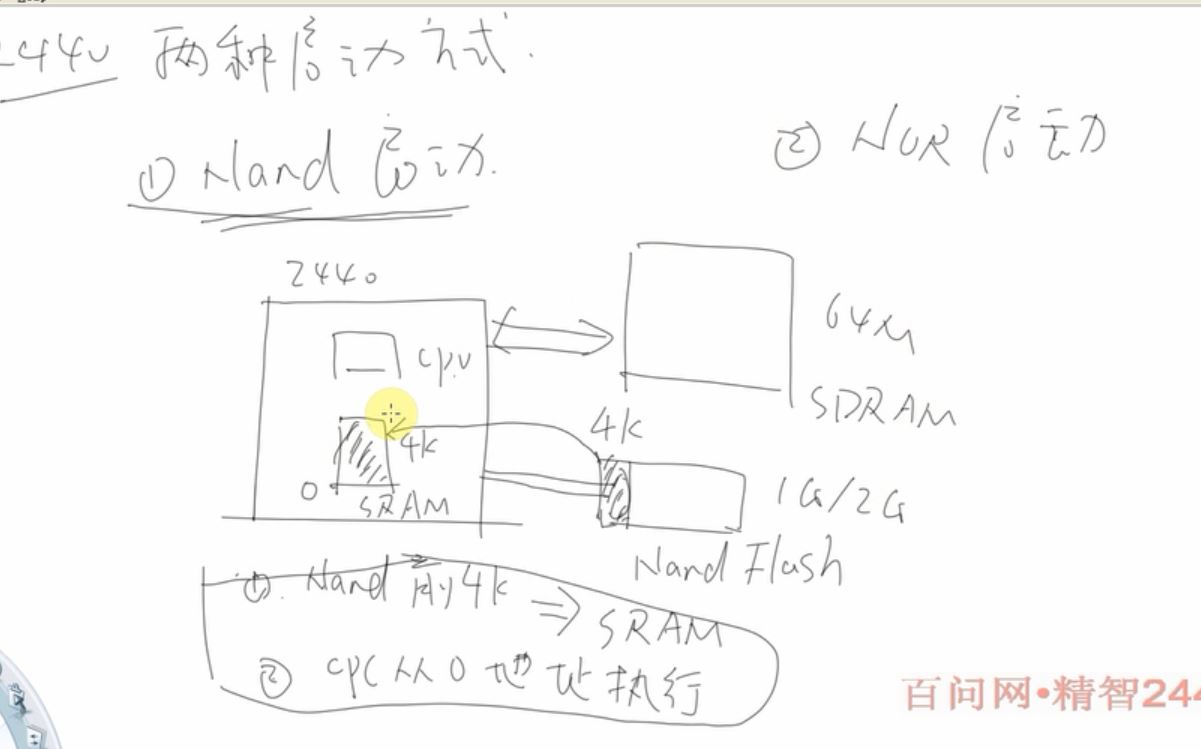 2440 两种启动方式.
① Nand 启动.
② NOR 启动
2440
CPU
64M
SDRAM
4K
4K
0
SRAM
1G/2G
Nand Flash
①. Nand 前4K ⇒ SRAM
② CPU从0地址执行
百问网•精智244